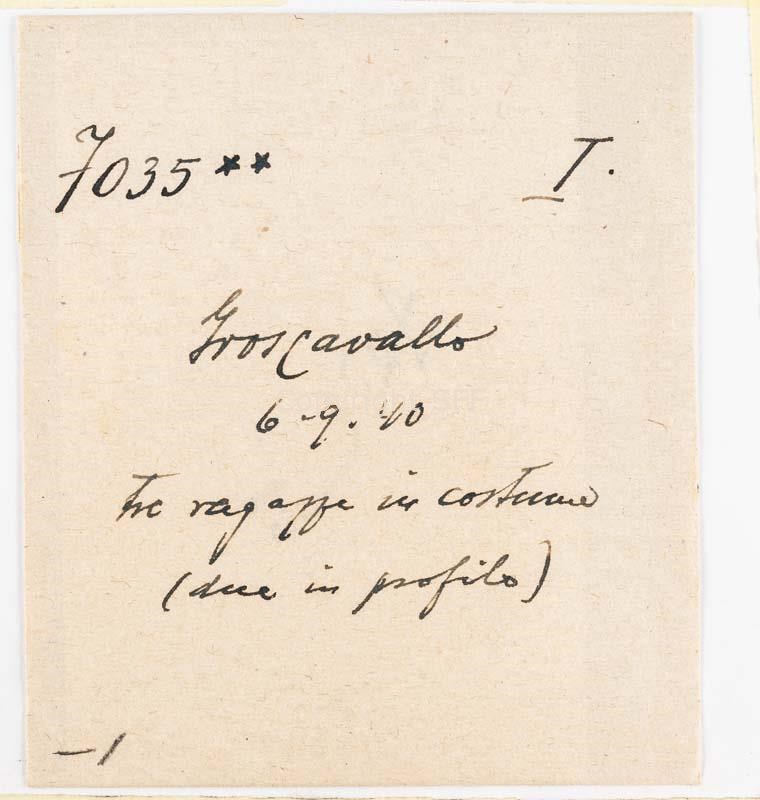 7035** I.
Groscavallo
6-9.40
tre ragazze in costume
(due in profilo)
-1